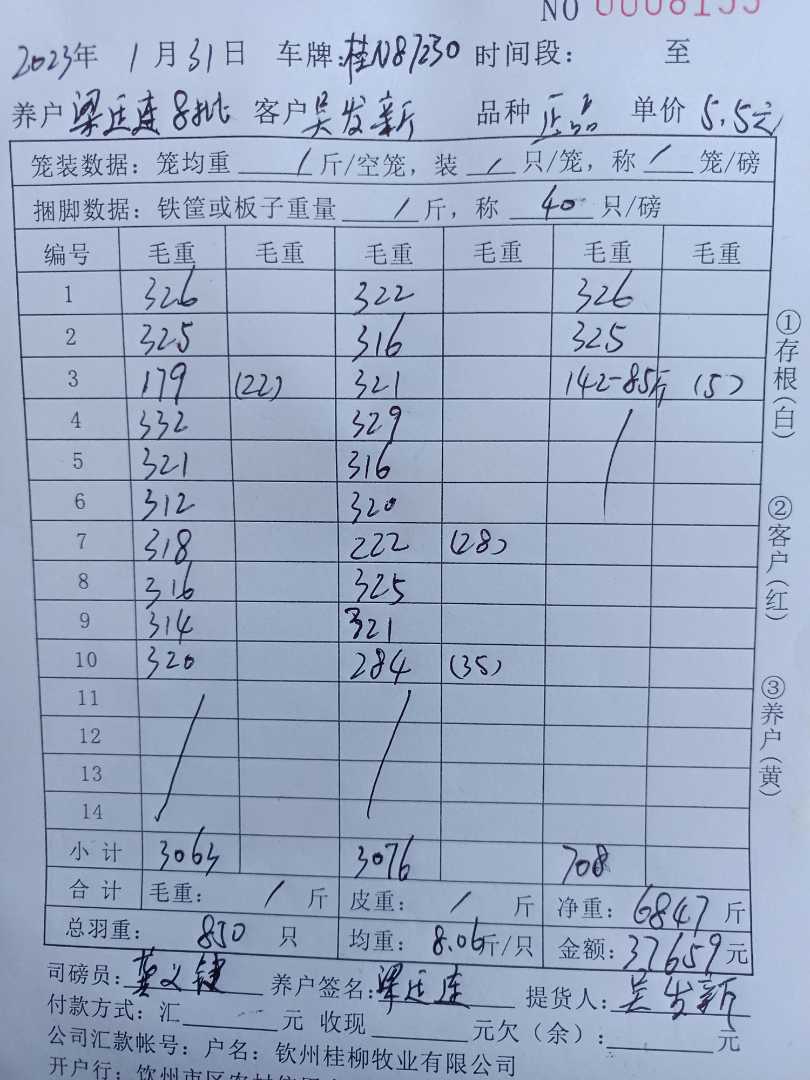 NO 0008155
2023年 1月31日 车牌:桂N87230 时间段: 至
养户 梁廷连8批 客户 吴发新 品种 正品 单价 5.5元
笼装数据：笼均重 / 斤/空笼，装 / 只/笼，称 / 笼/磅
捆脚数据：铁筐或板子重量 / 斤，称 40 只/磅
编号 毛重 毛重 毛重 毛重 毛重 毛重
1 326 322 326
2 325 316 325
3 179 (22) 321 142-85斤 (5)
4 332 329
5 321 316
6 312 320
7 318 222 (28)
8 316 325
9 314 321
10 320 284 (35)
11
12
13
14
小计 3063 3076 708
合计 毛重： / 斤 皮重： / 斤 净重：6847斤
总羽重： 850 只 均重：8.06斤/只 金额：37659元
司磅员: 养户签名:梁廷连 提货人:吴发新
付款方式：汇 元 收现 元欠（余）: 元
公司汇款帐号：户名：钦州桂柳牧业有限公司
开户行：钦州市区农村信用
①存根(白)
②客户(红)
③养户(黄)